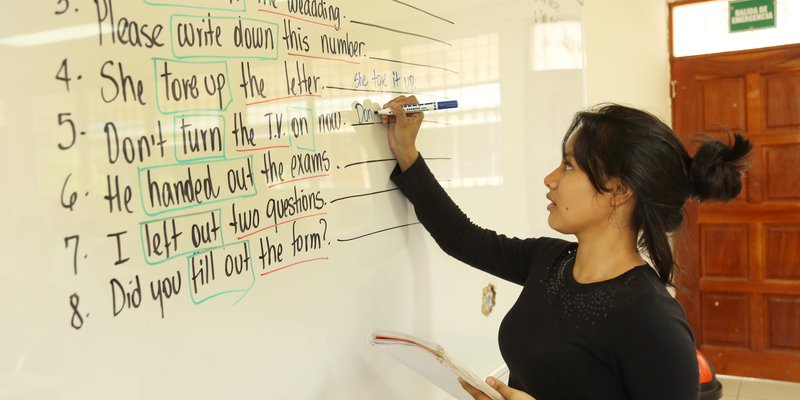 the weadding.
Please write down this number.
4. She tore up the letter. She tore it up
5. Don't turn the T.V. on now. Don
6. He handed out the exams.
7. I left out two questions.
8. Did you fill out the form?
SALIDA DE
EMERGENCIA